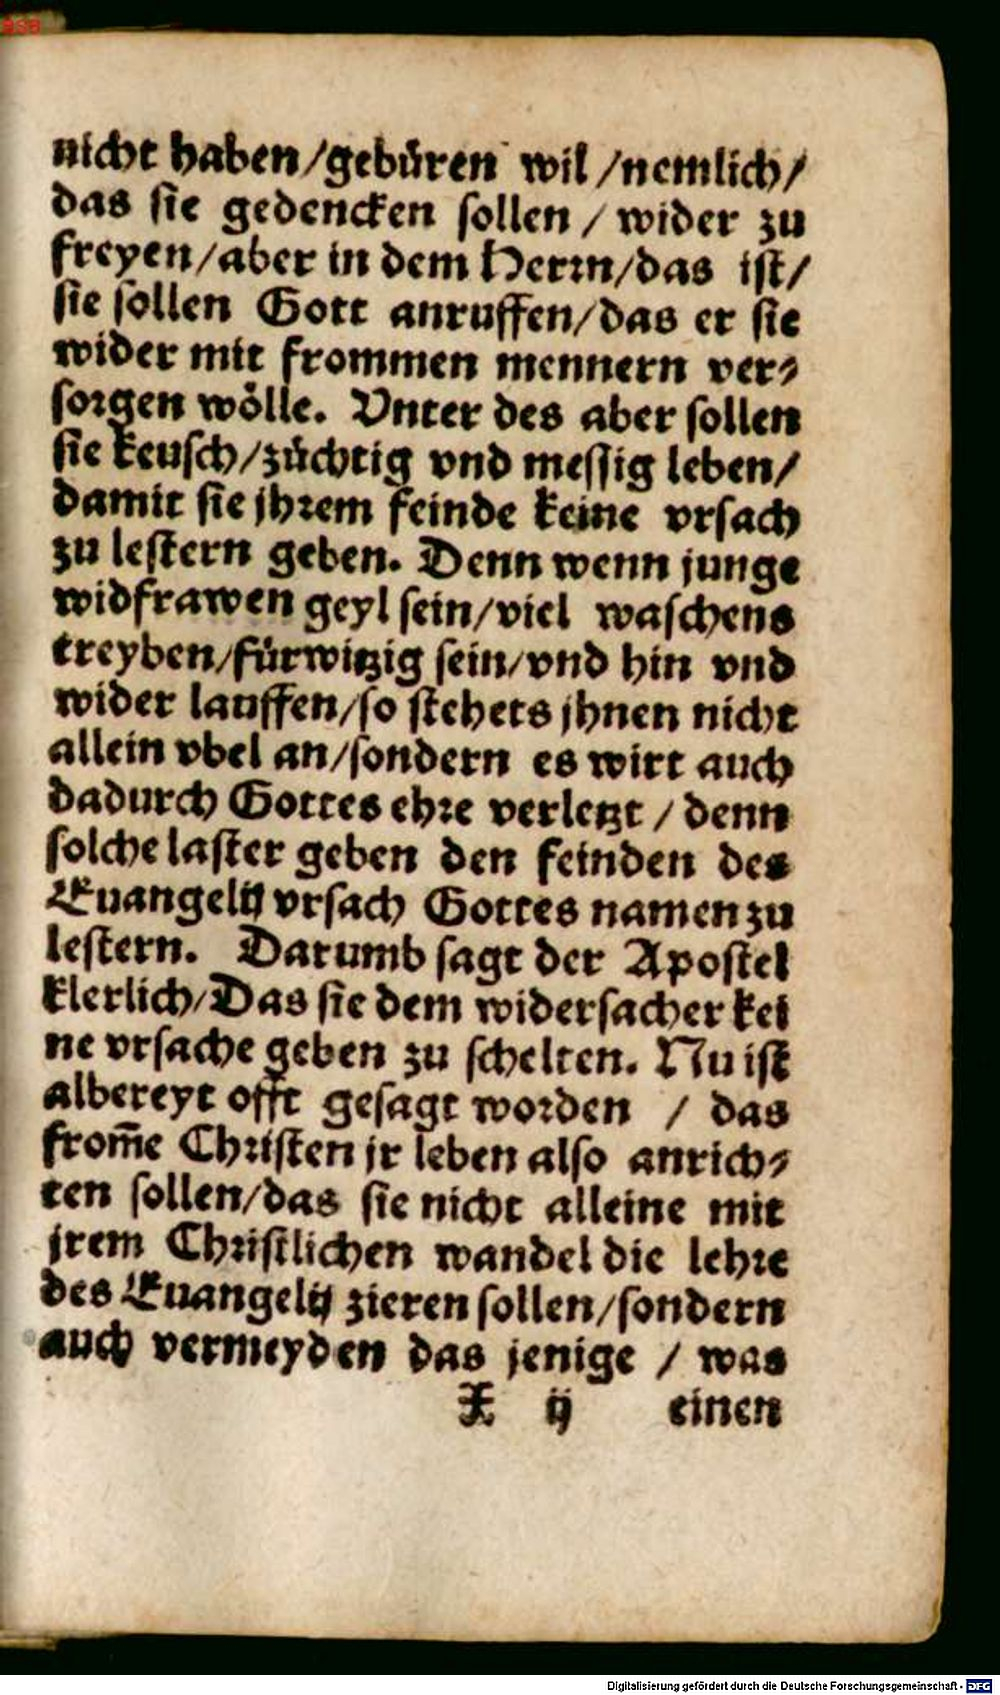 nicht haben/gebüren wil/nemlich/
das sie gedencken sollen/wider zu
freyen/aber in dem Herrn/das ist/
sie sollen Gott anruffen/das er sie
wider mit frommen mennern ver⸗
sorgen wölle. Vnter des aber sollen
sie keusch/züchtig vnd messig leben/
damit sie jhrem feinde keine vrsach
zu lestern geben. Denn wenn junge
widfrawen geyl sein/viel waschens
treyben/fürwitzig sein/vnd hin vnd
wider lauffen/so stehets jhnen nicht
allein vbel an/sondern es wirt auch
dadurch Gottes ehre verletzt/denn
solche laster geben den feinden des
Euangelij vrsach Gottes namen zu
lestern. Darumb sagt der Apostel
klerlich/Das sie dem widersacher kei
ne vrsache geben zu schelten. Nu ist
albereyt offt gesagt worden / das
from̄e Christen jr leben also anrich⸗
ten sollen/das sie nicht alleine mit
jrem Christlichen wandel die lehre
des Euangelij zieren sollen/sondern
auch vermeyden das jenige / was
X ij einen
Digitalisierung gefördert durch die Deutsche Forschungsgemeinschaft - DFG